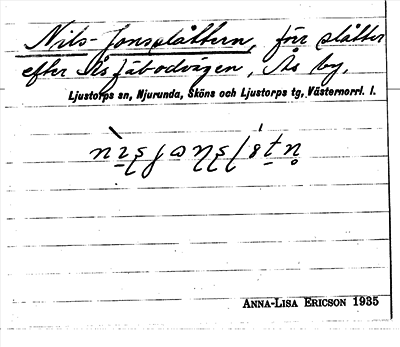 Nils-Jonsslåttern, förr slåtter
efter Ås fäbodvägen, Ås by.
Ljustorps sn, Njurunda, Sköns och Ljustorps tg, Västernorrl. l.
ANNA-LISA ERICSON 1935